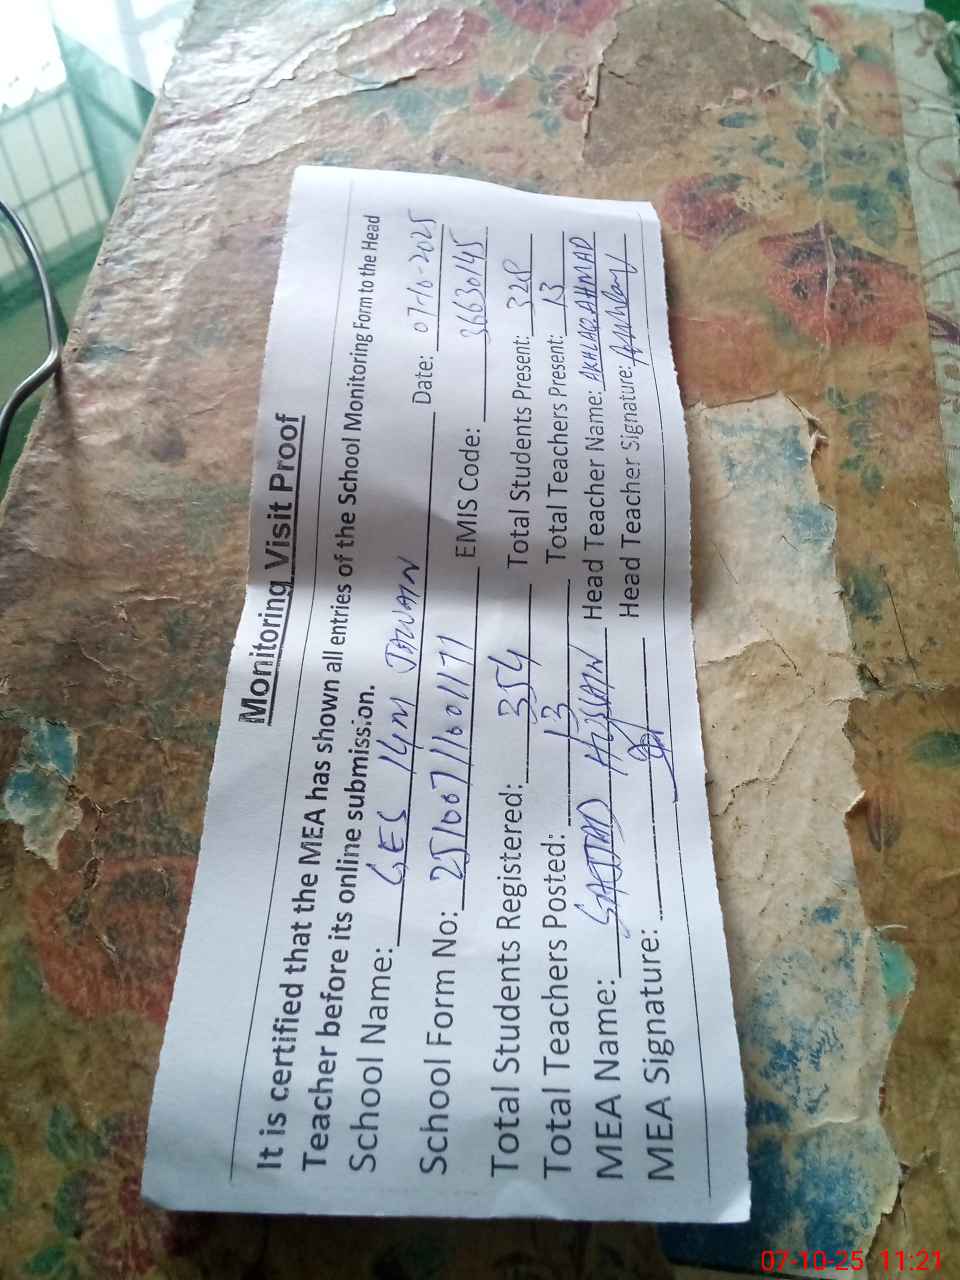 Monitoring Visit Proof
It is certified that the MEA has shown all entries of the School Monitoring Form to the Head
Teacher before its online submission.
School Name: GES 14M JAWAIN Date: 07-10-2025
School Form No: 25100711601177 EMIS Code: 36630145
Total Students Registered: 354 Total Students Present: 328
Total Teachers Posted: 13 Total Teachers Present: 13
MEA Name: SAJJAD HUSSAIN Head Teacher Name: AKHLAQ AHMAD
MEA Signature: Head Teacher Signature:
07-10-25 11:21